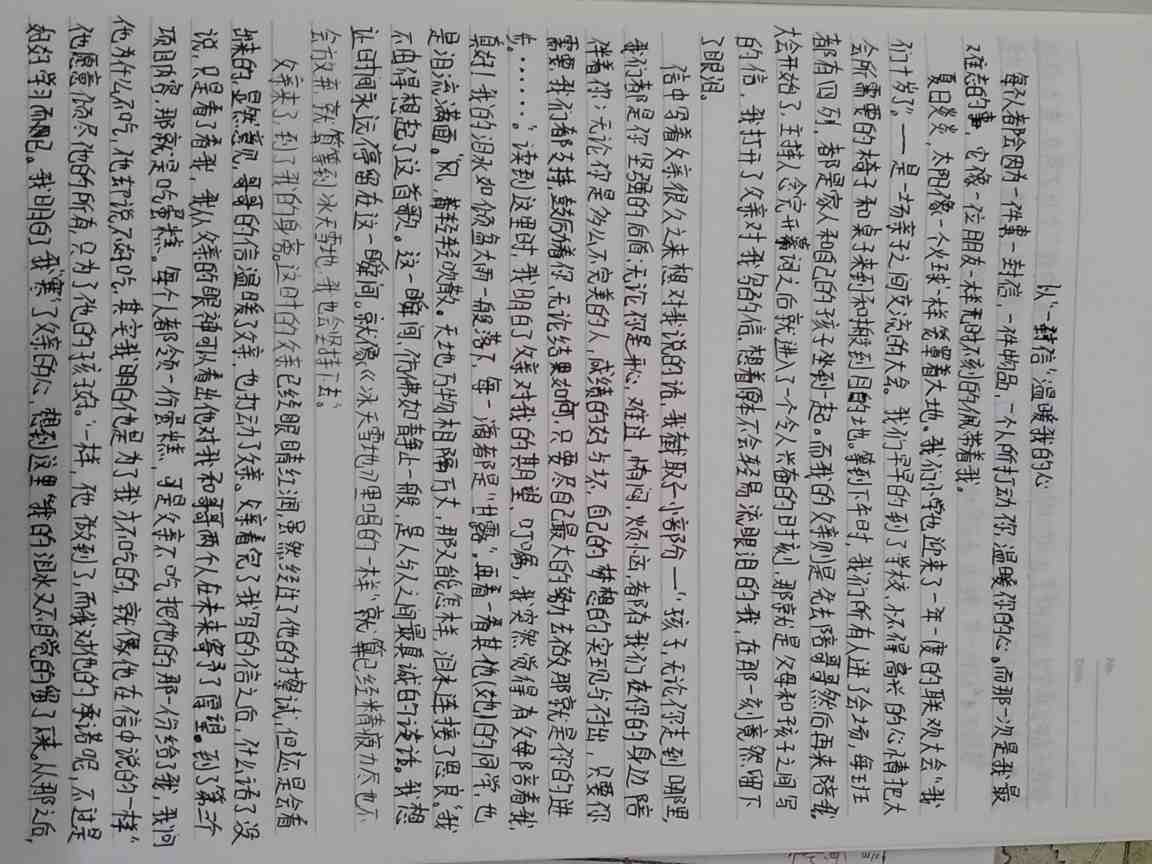 从"一封信"温暖我的心
每个人都会因为一件事一封信,一件物品,一个人所打动你,温暖你的心。而那一次是我最
难忘的事,它像一位朋友一样无时不刻的佩带着我。
夏日炎炎,太阳像一个火球一样笼罩着大地。我们小学也迎来了一年一度的联欢大会"我
们十岁了"——是一场亲子之间交流的大会。我们早早的到了学校,怀着高兴的心情把大
会所需要的椅子和桌子来到和搬到目的地,等到下午时,我们所有人进了会场,每班
都有四列,都是家人和自己的孩子坐到一起。而我的父亲则是先去陪哥哥然后再来陪我,
大会开始了,主持人念完开幕词之后就进入了一个令人兴奋的时刻,那就是父母和孩子之间写
的信,我打开了父亲对我写的信,想着原本不会轻易流眼泪的我,在那一刻竟然留下
了眼泪。
信中写着父亲很久之来想对我说的话,我截取了一小部分一"孩子,无论你走到哪里,
我们都是你坚强的后盾;无论你是开心、难过、忧闷、烦恼,都有我们在你的身边陪
伴着你;无论你是多么不完美的人,成绩的好与坏,自己的梦想的实现与付出,只要你
需要我们都支持,鼓励着你,无论结果如何,只要尽自己最大的努力去做那就是你的进
步。……"读到这里时,我明白了父亲对我的期望、叮嘱,我突然觉得有父母陪着我,
真好!我的泪水如倾盆大雨一般落下,每一滴都是"甘露",再看一看其他(她)的同学,也
是泪流满面。"风,着轻轻吹散。天地万物相隔万丈,那又能怎样,泪水连接了思良。"我
不由得想起了这首歌。这一瞬间,仿佛如静止一般,是人与人之间最真诚的谈话。我想
让时间永远停留在这一瞬间。就像《冰天雪地》里唱的一样"就算已经精疲力尽也不
会放弃,就算等到冰天雪地,我也会坚持下去。"
父亲来了,到了我的身旁。这时的父亲已经眼睛红润,虽然经住了他的擦拭,但还是会看
出来的,显然意见,哥哥的信温暖了父亲,也打动了父亲。父亲看完了我写的信之后,什么话了没
说,只是看了看我,我从父亲的眼神可以看出他对我和哥哥两个人在未来寄予了厚望。到了第三个
项目啦,那就是吃蛋糕。每个人都领一份蛋糕,可是父亲不吃,把他的那一份给了我,我问
他为什么不吃,他却说不爱吃,其实我明白他是为了我才不吃的,就像他在信中说的一样"
他愿意倾尽他的所有,只为了他的孩子好。"一样,他做到了,而我对他的承诺呢,不过是
好好学习而已。我明白了,我"寒"了父亲的心,想到这里,我的泪水又不自觉的留了下来。从那之后,